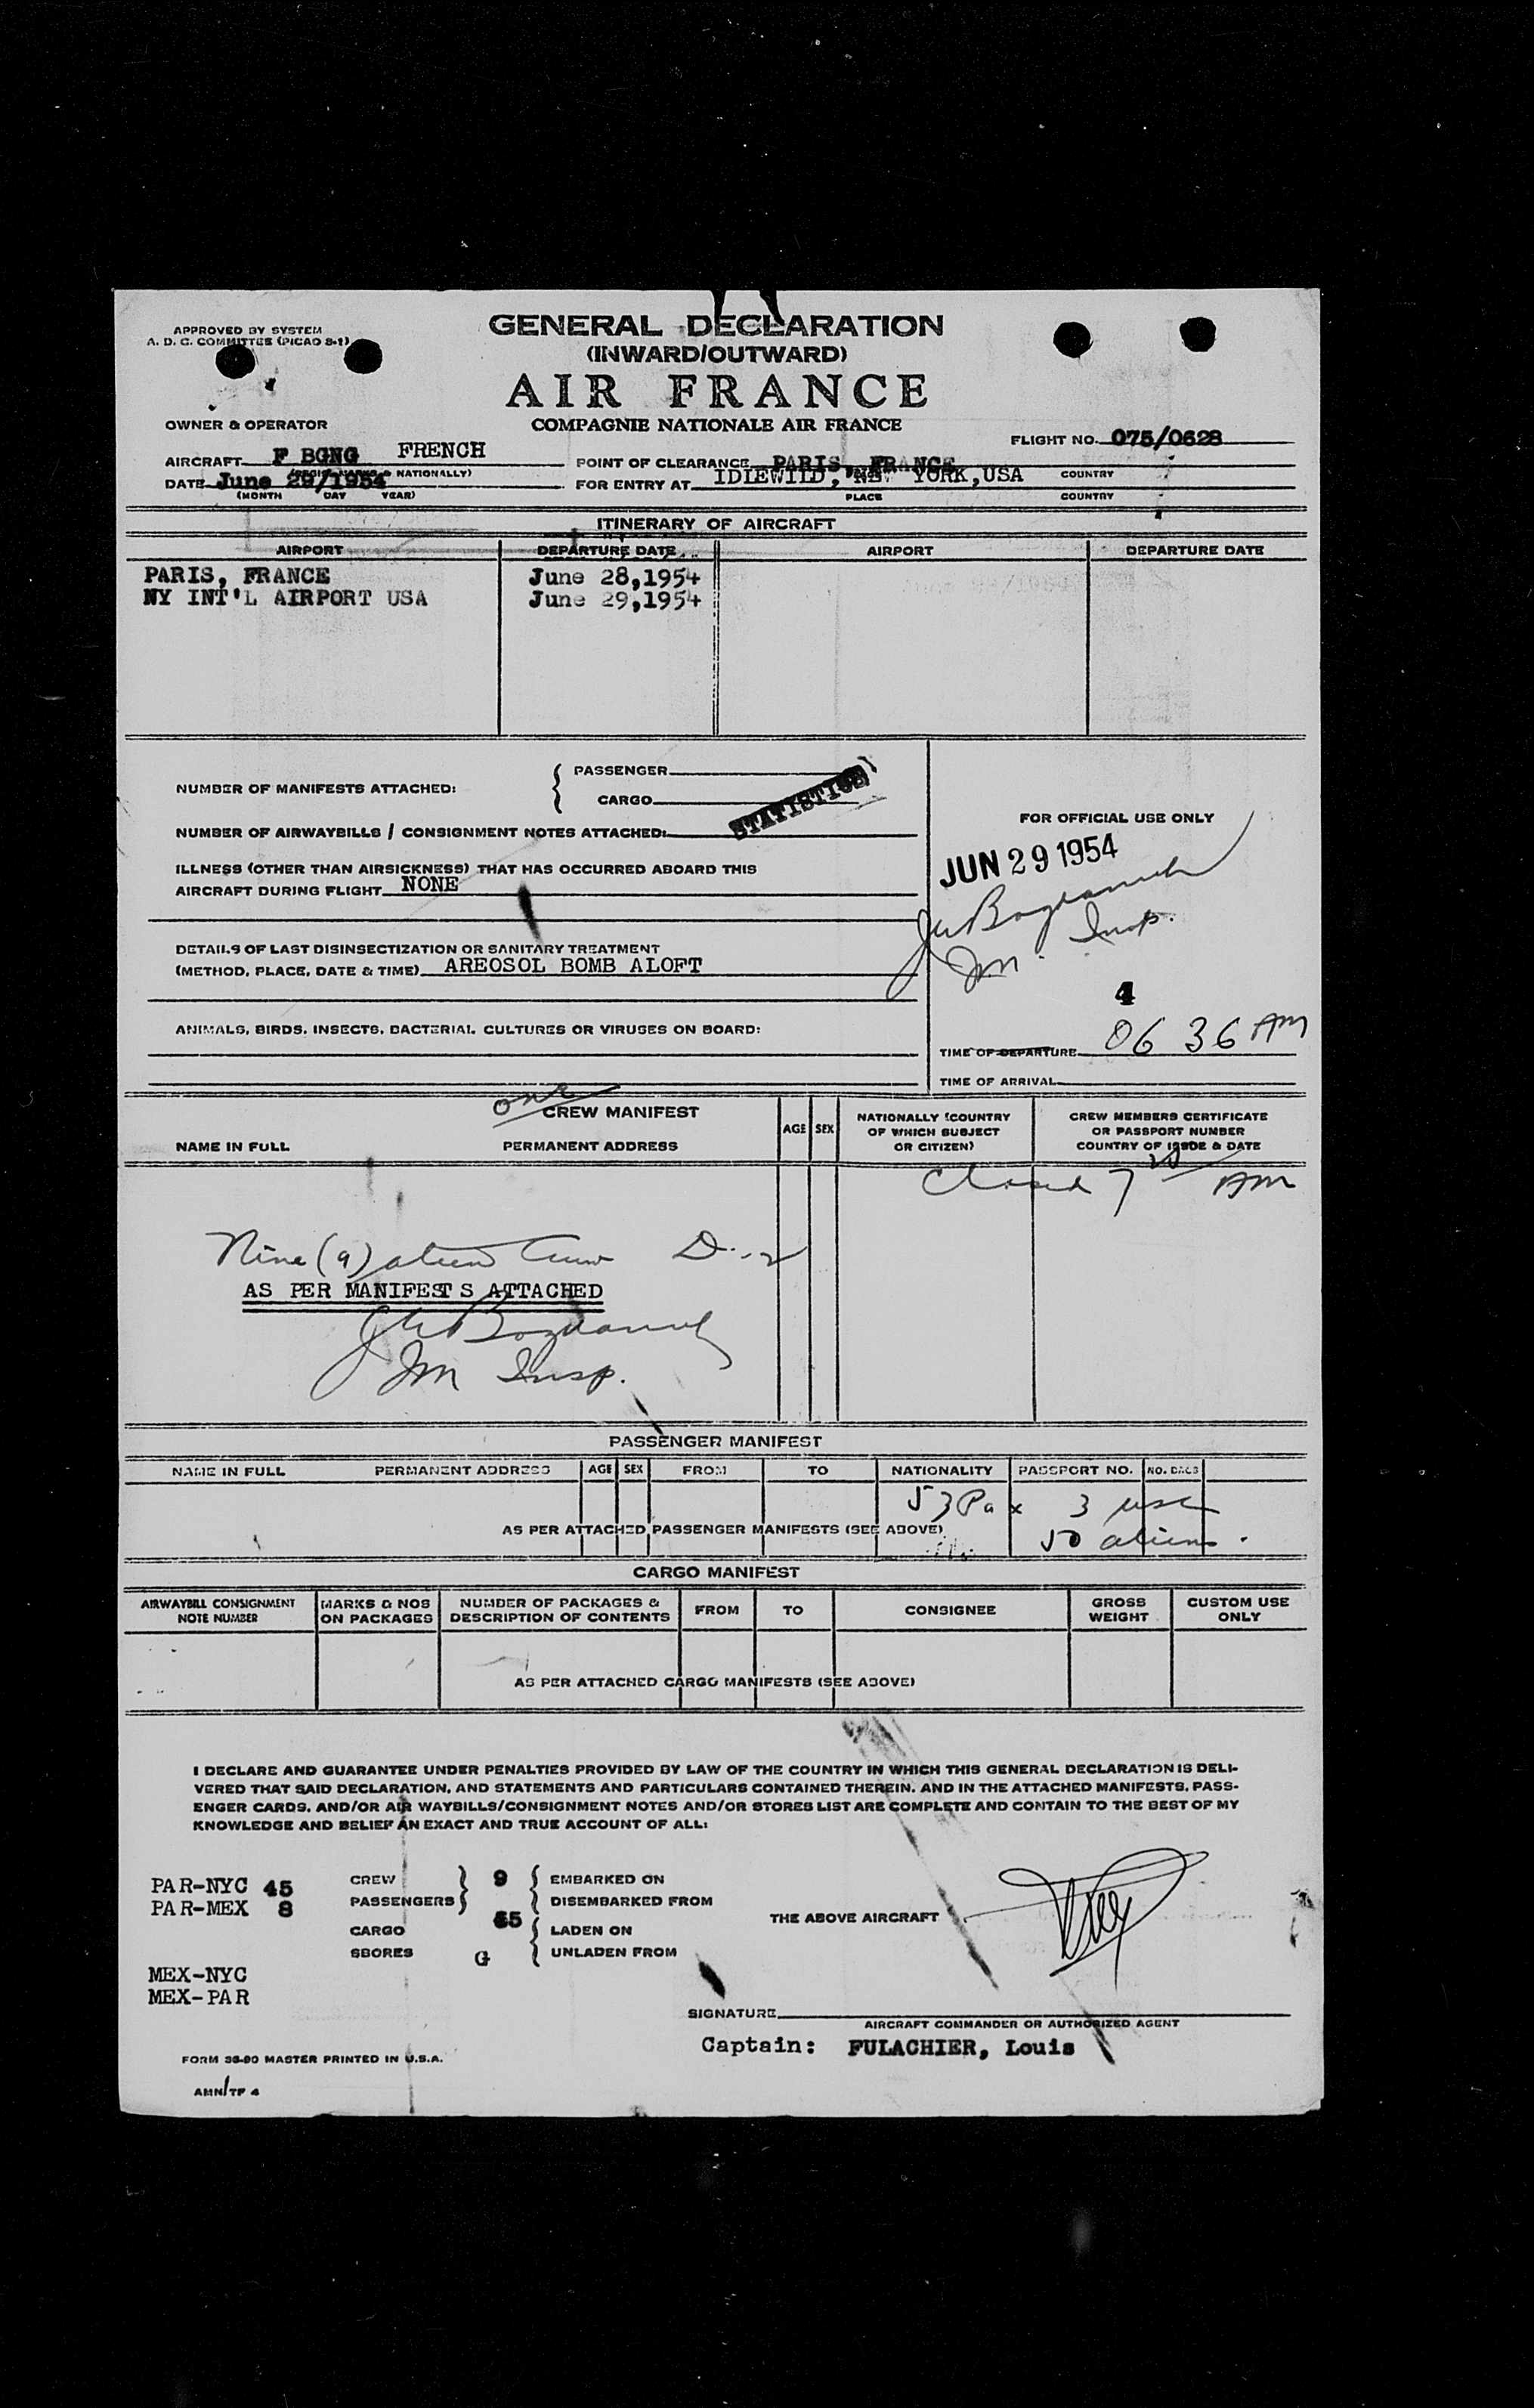 APPROVED BY SYSTEM
A. D. C. COMMITTEE (PICAO 8-1)
GENERAL DECLARATION
(INWARD/OUTWARD)
AIR FRANCE
COMPAGNIE NATIONALE AIR FRANCE
OWNER & OPERATOR
FLIGHT NO. 075/0628
AIRCRAFT F BGNG FRENCH
NATIONALLY)
POINT OF CLEARANCE PARIS, FRANCE
COUNTRY
DATE June 29/1954
(MONTH DAY YEAR)
FOR ENTRY AT IDLEWILD, NEW YORK, USA
PLACE COUNTRY
ITINERARY OF AIRCRAFT
AIRPORT DEPARTURE DATE AIRPORT DEPARTURE DATE
PARIS, FRANCE June 28,1954
NY INT'L AIRPORT USA June 29,1954
NUMBER OF MANIFESTS ATTACHED: PASSENGER
CARGO
STATISTICS
NUMBER OF AIRWAYBILLS / CONSIGNMENT NOTES ATTACHED:
ILLNESS (OTHER THAN AIRSICKNESS) THAT HAS OCCURRED ABOARD THIS
AIRCRAFT DURING FLIGHT NONE
DETAILS OF LAST DISINSECTIZATION OR SANITARY TREATMENT
(METHOD, PLACE, DATE & TIME) AREOSOL BOMB ALOFT
ANIMALS, BIRDS, INSECTS, BACTERIAL CULTURES OR VIRUSES ON BOARD:
FOR OFFICIAL USE ONLY
JUN 29 1954
Im. Insp.
4
TIME OF DEPARTURE 06 36 AM
TIME OF ARRIVAL
one
CREW MANIFEST
NAME IN FULL PERMANENT ADDRESS
AGE SEX
NATIONALLY (COUNTRY
OF WHICH SUBJECT
OR CITIZEN)
CREW MEMBERS CERTIFICATE
OR PASSPORT NUMBER
COUNTRY OF ISSUE & DATE
Closed 7 20 AM
Nine (9) alien Crew
AS PER MANIFEST S ATTACHED
Im Insp.
PASSENGER MANIFEST
NAME IN FULL PERMANENT ADDRESS AGE SEX FROM TO NATIONALITY PASSPORT NO. NO. BAGS
53 Pax 3 usc
AS PER ATTACHED PASSENGER MANIFESTS (SEE ABOVE)
50 aliens.
CARGO MANIFEST
AIRWAYBILL CONSIGNMENT
NOTE NUMBER
MARKS & NOS
ON PACKAGES
NUMBER OF PACKAGES &
DESCRIPTION OF CONTENTS
FROM
TO
CONSIGNEE
GROSS
WEIGHT
CUSTOM USE
ONLY
AS PER ATTACHED CARGO MANIFESTS (SEE ABOVE)
I DECLARE AND GUARANTEE UNDER PENALTIES PROVIDED BY LAW OF THE COUNTRY IN WHICH THIS GENERAL DECLARATION IS DELI-
VERED THAT SAID DECLARATION, AND STATEMENTS AND PARTICULARS CONTAINED THEREIN, AND IN THE ATTACHED MANIFESTS, PASS-
ENGER CARDS, AND/OR AIR WAYBILLS/CONSIGNMENT NOTES AND/OR STORES LIST ARE COMPLETE AND CONTAIN TO THE BEST OF MY
KNOWLEDGE AND BELIEF AN EXACT AND TRUE ACCOUNT OF ALL:
PAR-NYC 45
PAR-MEX 8
MEX-NYC
MEX-PAR
CREW 9 EMBARKED ON
PASSENGERS DISEMBARKED FROM
CARGO LADEN ON
SBORES G UNLADEN FROM
THE ABOVE AIRCRAFT
SIGNATURE
AIRCRAFT COMMANDER OR AUTHORIZED AGENT
Captain: FULACHIER, Louis
FORM 36-90 MASTER PRINTED IN U.S.A.
AMN/TF 4